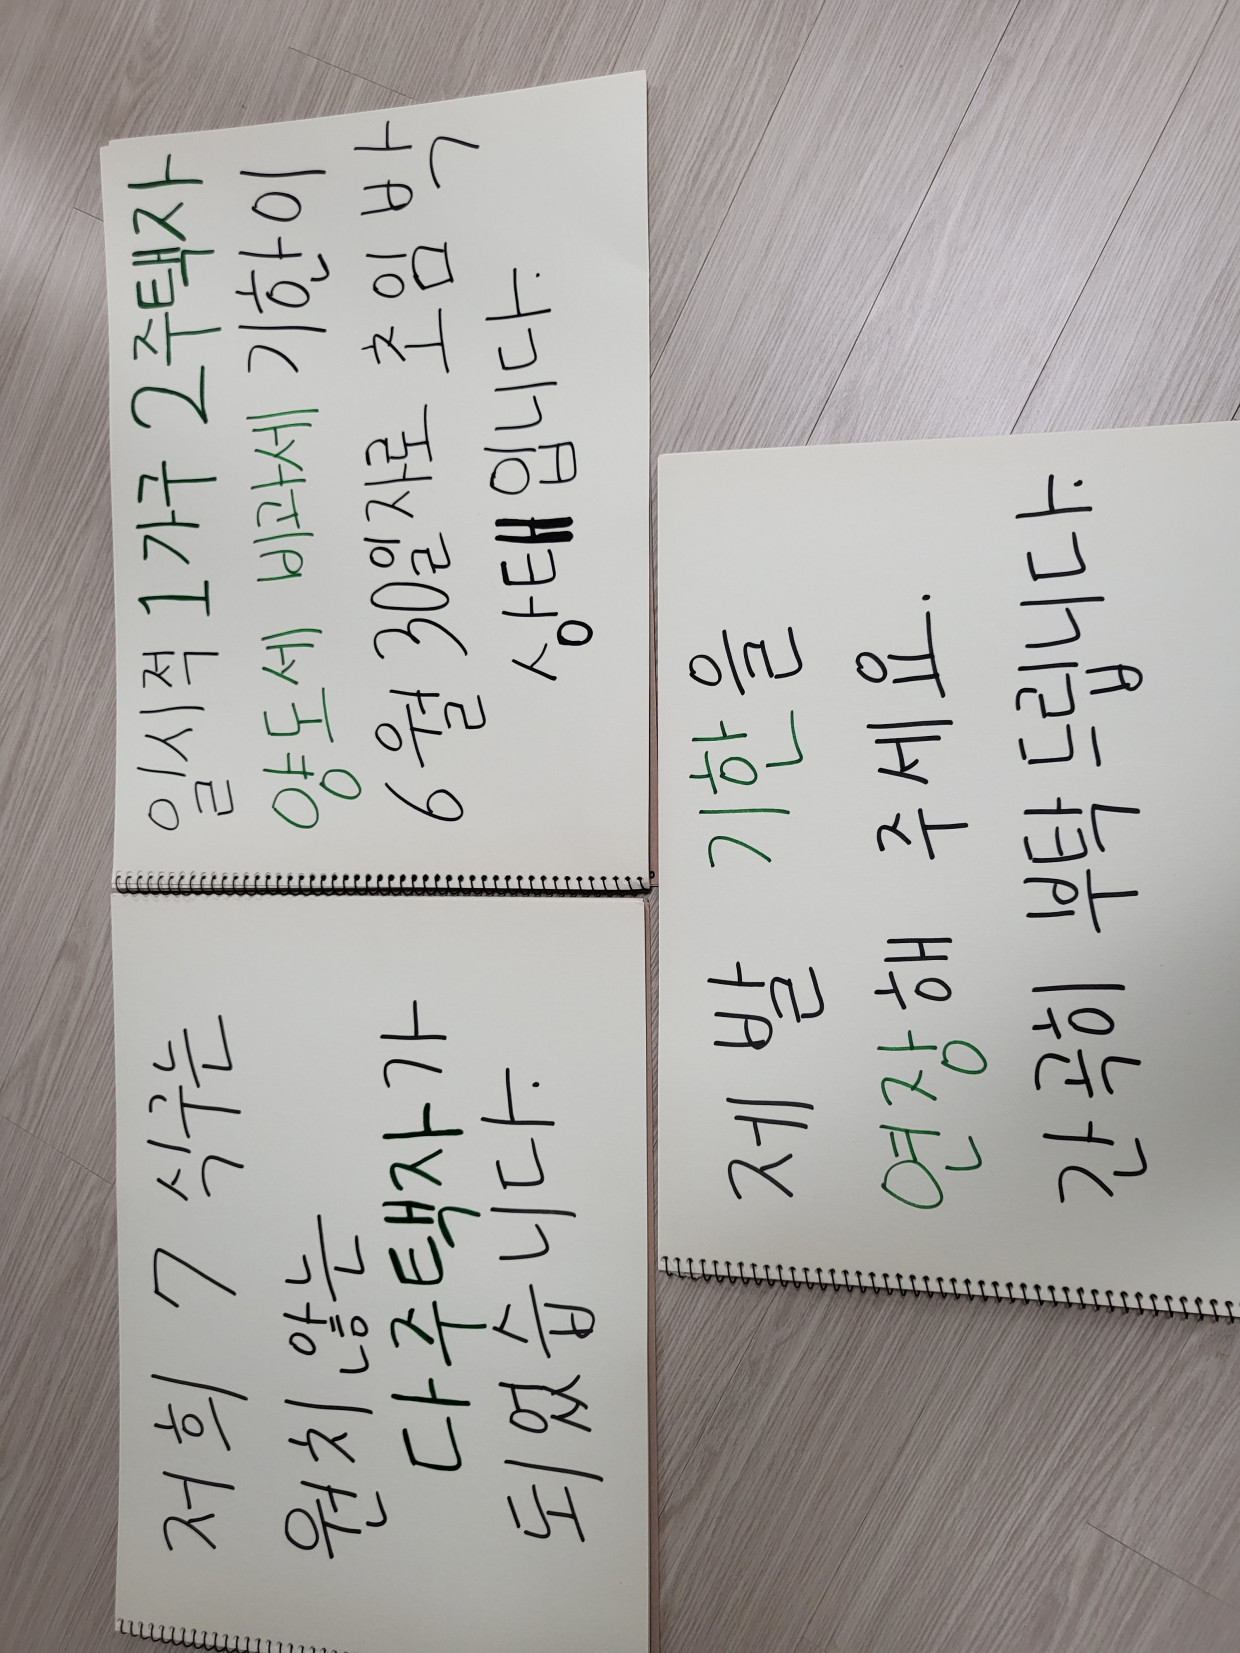 저희 7 식구는
원치 않는
다주택자가
되었습니다.
일시적 1가구 2주택자
양도세 비과세 기한이
6월 30일자로 초임박
상태입니다.
제발 기한을
연장해 주세요.
간곡히 부탁드립니다.